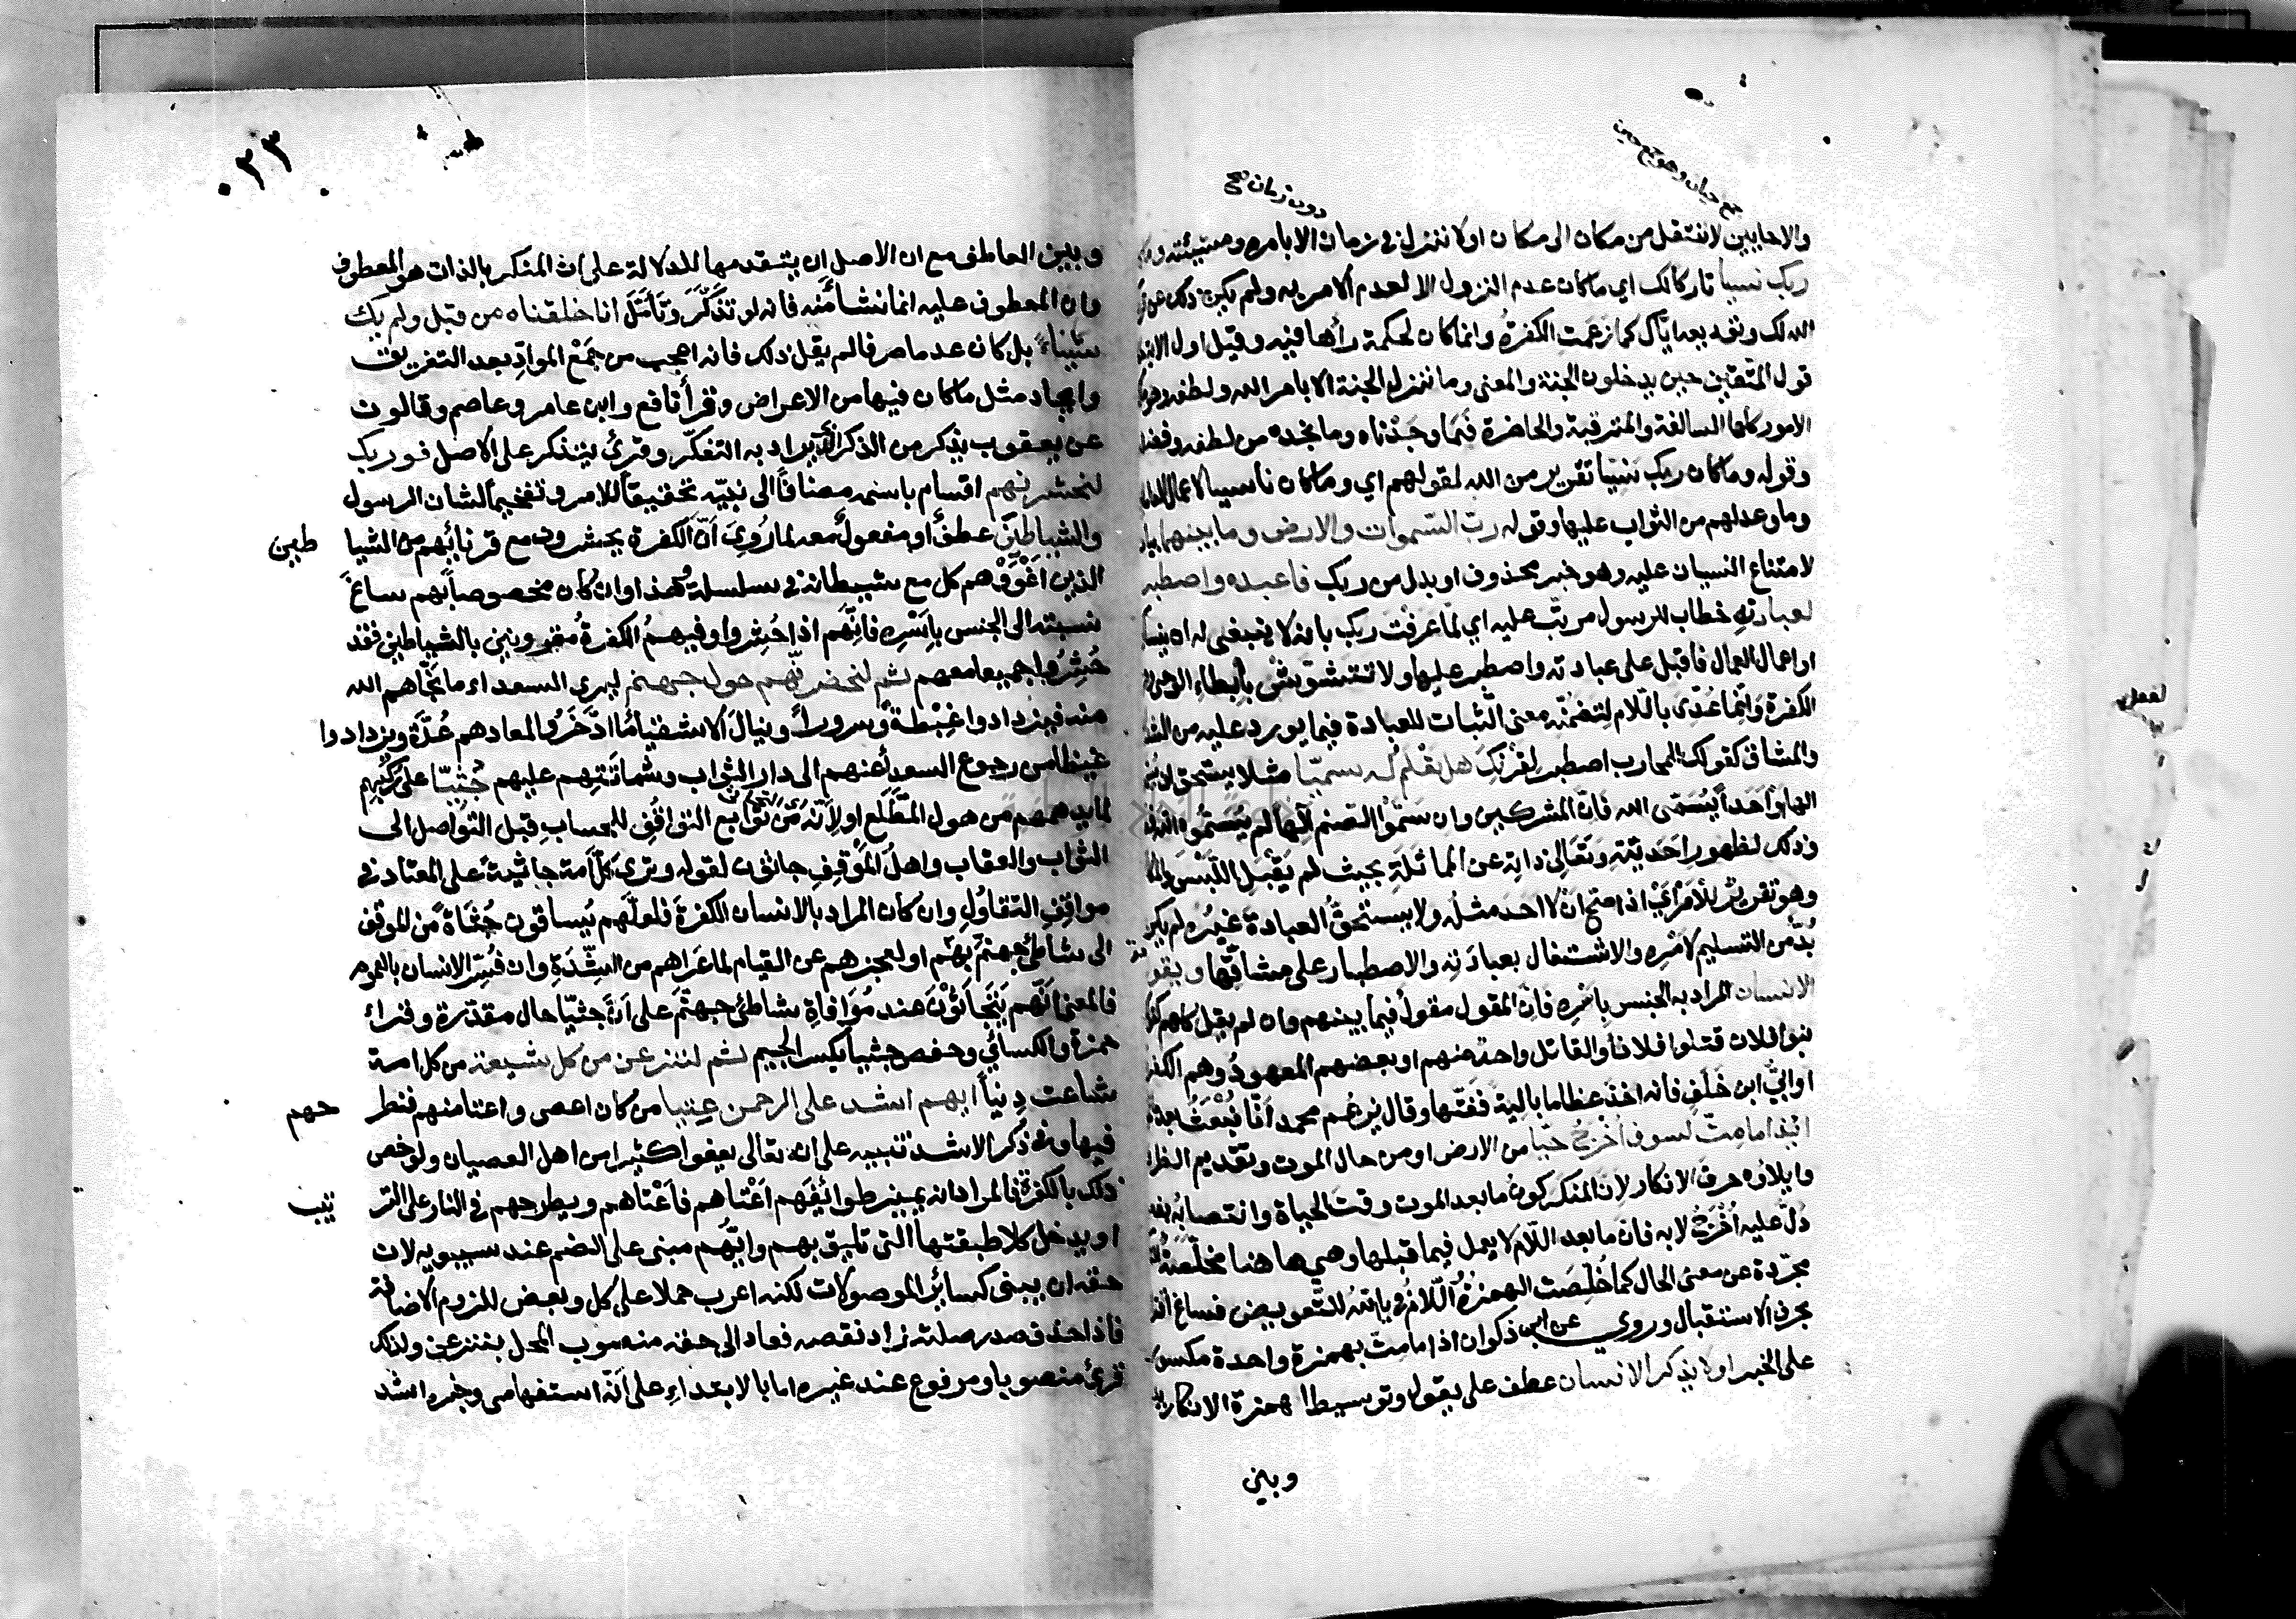 جمع حيان وهو جمع حين
دون زمان صح
والاحايين لا ننتقل من مكان الى مكان او لا ننزل في زمان الا بامره ومشيئته وما
ربك نسيا تاركا لك اي ما كان عدم النزول الا لعدم الامر به ولم يكن ذلك عن
الله لك وتوديعه اياك كما زعمت الكفرة وانما كان لحكمة رأها فيه وقيل اول الاية
قول المتقين حين يدخلون الجنة والمعنى وما ننزل الجنة الا بامر الله ولطفه وهو
الامور كلها السالفة والمترقبة والحاضرة فما وجدناه وما نجده من لطفه وفضله
وقوله وما كان ربك نسيا تقرير من الله لقولهم اي وما كان ناسيا لاعمال
وما وعد لهم من الثواب عليها وقوله رب السموات والارض وما بينهما بيان
لامتناع النسيان عليه وهو خبر محذوف او بدل من ربك فاعبده واصطبر
لعبادته خطاب للرسول مرتب عليه اي لما عرفت ربك بانه لا ينبغي له ان ينسا
او اعمال العمال فاقبل على عبادته واصطبر عليها ولا تتشوش بابطاء الوحي
الكفرة وانما عدي باللام لتضمنه معنى الثبات للعبادة فيما يورد عليه من
والمشاق كقولك للمحارب اصطبر لقرنك هل تعلم له سميا مثلا يستحق ان
الها او احدا يسمى الله فان المشركين وان سموا الصنم الها لم يسموه الله
وذلك لظهور احديته وتعالي ذاته عن المماثلة بحيث لم يقبل اللبس
وهو تقرير للامر اي اذا صح ان لا احد مثله ولا يستحق العبادة غيره لم يكن
بد من التسليم لامره والاشتغال بعبادته والاصطبار على مشاقها ويقول
الانسان المراد به الجنس باسره فان المقول مقول فيما بينهم وان لم يقل كلهم
بنوا فلان قتلوا فلانا والقاتل واحد منهم او بعضهم المعهود وهم الكفرة
او ابي ابن خلف فانه اخذ عظاما بالية ففتها وقال يزعم محمد انا نبعث بعد
ائذا ما مت لسوف اخرج حيا من الارض او من حال الموت وتقديم الظرف
وايلاؤه حرف الانكار لان المنكر كون ما بعد الموت وقت الحياة وانتصابه بفعل
دل عليه اخرج لا به فان ما بعد اللام لا يعمل فيما قبلها وهي هاهنا مخلصة
مجردة عن معنى الحال كما خلصت الهمزة واللام في يا الله للتعويض فساغ
بحرف الاستقبال وروي عن ابن ذكوان اذا ما مت بهمزة واحدة مكسورة
على الخبر اولا يذكر الانسان عطف على يقول وتوسيط الهمزة الانكار
وبين
٣٣
وبين العاطف مع ان الاصل ان يتقدمها للدلالة على ان المنكر بالذات هو المعطوف
وان المعطوف عليه انما نشأ منه فانه لو تذكر وتأمل انا خلقناه من قبل ولم يك
شيئا بل كان عدما صرفا لم يقل ذلك فانه اعجب من جمع المواد بعد التفريق
وايجاد مثل ما كان فيها من الاعراض وقرأ نافع وابن عامر وعاصم وقالون
عن يعقوب يذكر من الذكر الذي يراد به التفكر وقرئ يتذكر على الاصل فوربك
لنحشرنهم اقسام باسمه مضافا الى نبيه تحقيقا للامر وتفخيما لشان الرسول
والشياطين عطف او مفعول معه لما روي ان الكفرة يحشرون مع قرنائهم من الشيا طين
الذين اغووهم كل مع شيطانه في سلسلة وهذا وان كان مخصوصا بهم ساغ
نسبته الى الجنس باسره فانهم اذا حشروا وفيهم الكفرة مقرونين بالشياطين فقد
حشروا جميعا معهم ثم لنحضرنهم حول جهنم ليرى السعداء ما نجاهم الله
منه فيزدادوا غبطة وسرورا وينال الاشقيا ما ادخروا لمعادهم عدة ويزدادوا
غيظا من رجوع السعداء عنهم الى دار الثواب وشماتتهم عليهم جثيا على ركبهم
لما يدهمهم من هول المطلع او لانه من توابع التواقف للحساب قبل التواصل الى
الثواب والعقاب واهل الموقف جاثون لقوله وترى كل امة جاثية على المعتاد في
مواقف التقاول وان كان المراد بالانسان الكفرة فلعلهم يساقون جثاة من الموقف
الى شاطئ جهنم بهم او لعجزهم عن القيام لما عراهم من الشدة وان فسر الانسان بالعموم
فالمعنى انهم يتجاثون عند موافاة شاطئ جهنم على ان جثيا حال مقدرة وقراء
حمزة والكسائي وحفص جثيا بكسر الجيم ثم لننزعن من كل شيعة من كل امة
شاعت دينا ايهم اشد على الرحمن عتيا من كان اعصى واعتا منهم فنطر حهم
فيها وفي ذكر الاشد تنبيه على انه تعالى يعفوا كثيرا من اهل العصيان ولو خص
ذلك بالكفرة فالمراد انه يميز طوائفهم اعتاهم فاعتاهم ويطرحهم في النار على التر تيب
او يدخل كلا طبقتها التي تليق بهم وايهم مبني على الضم عند سيبويه لان
حقه ان يبنى كسائر الموصولات لكنه اعرب حملا على كل وبعض للزوم الاضافة
فاذا حذف صدر صلته زاد نقصه فعاد الى حقه منصوب المحل بننزعن ولذلك
قرئ منصوبا ومرفوع عند غيره اما بالابتداء على انه استفهامي وخبره اشد